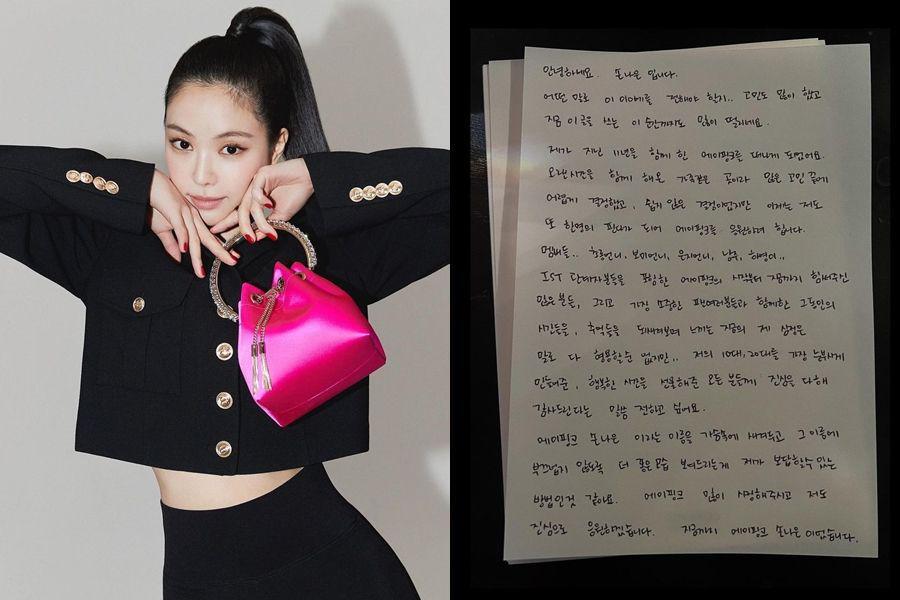 안녕하세요. 손나은 입니다.
어떤 말로 이 이야기를 전해야 할지.. 고민도 많이 했고
지금 이 글을 쓰는 이 순간까지도 많이 떨리네요.
제가 지난 11년을 함께 한 에이핑크를 떠나게 되었어요.
오랜 시간을 함께 해온 가족같은 곳이라 많은 고민 끝에
어렵게 결정했고, 쉽지 않은 결정이었지만 이제는 저도
또 한명의 판다가 되어 에이핑크를 응원하려 합니다.
멤버들.. 초롱언니, 보미언니, 은지언니, 남주, 하영이..
IST 관계자분들을 포함한 에이핑크의 시작부터 지금까지 힘써주신
많은 분들, 그리고 가장 소중한 팬여러분들과 함께한 그동안의
시간들을, 추억들을 되새겨보며 느끼는 지금의 제 심정은
말로 다 형용할순 없지만.. 저의 10대, 20대를 가장 눈부시게
만들어준, 행복한 시간을 선물해준 모든 분들께 진심을 다해
감사드린다는 말씀 전하고 싶어요.
에이핑크 손나은 이라는 이름을 가슴속에 새겨두고 그 이름에
부끄럽지 않도록 더 좋은 모습 보여드리는게 제가 보답할수 있는
방법인것 같아요. 에이핑크 많이 사랑해주시고 저도
진심으로 응원하겠습니다. 지금까지 에이핑크 손나은 이었습니다.